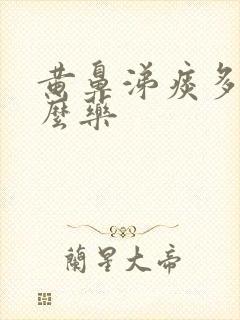 黄鼻涕痰多
麼藥
蘭星大帝